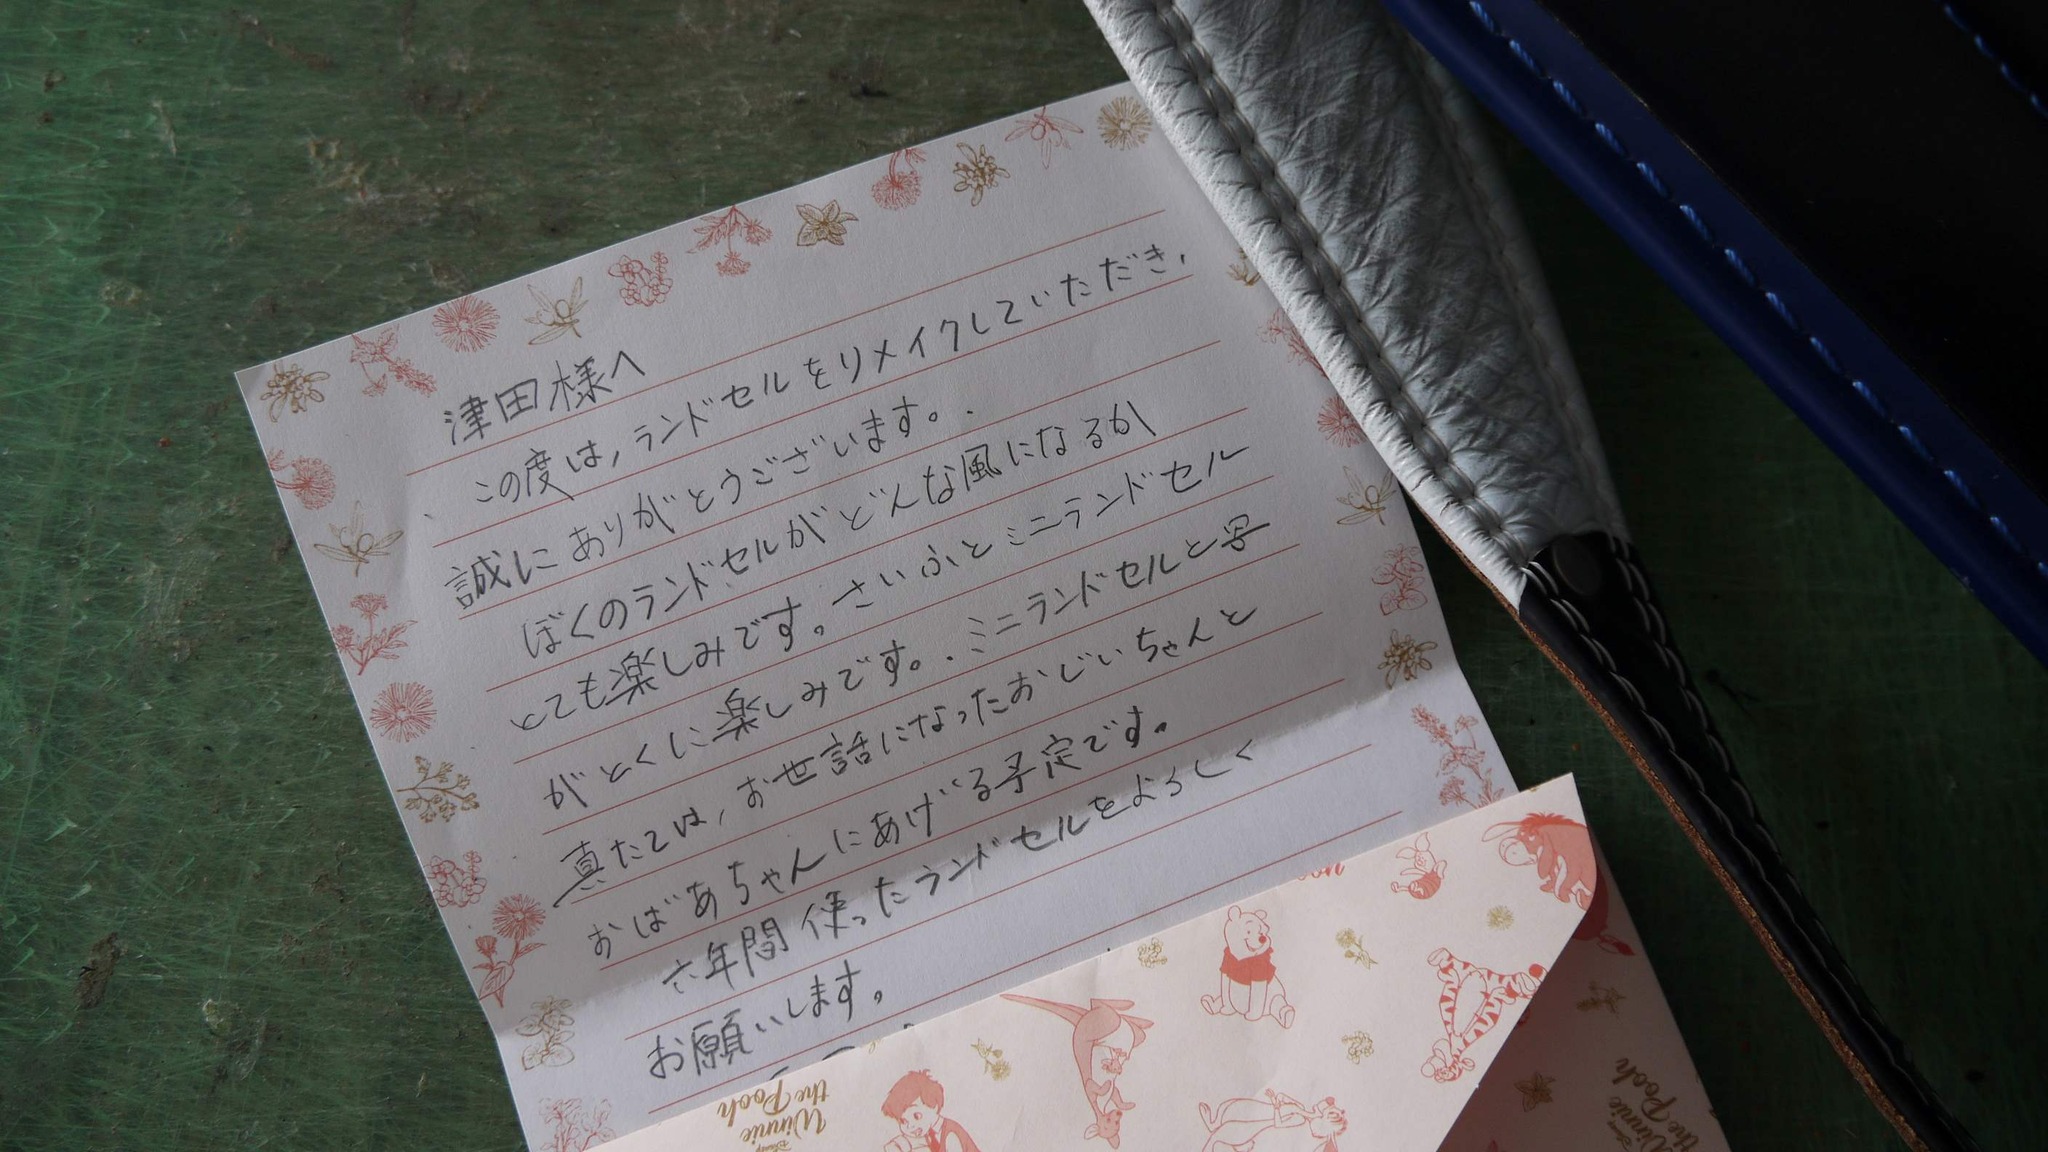 津田様へ
この度は,ランドセルをリメイクしていただき,
誠にありがとうございます。
ぼくのランドセルがどんな風になるか
とても楽しみです。さいふとミニランドセル
がとくに楽しみです。ミニランドセルと写
真たては,お世話になったおじいちゃんと
おばあちゃんにあげる予定です。
六年間使ったランドセルをよろしく
お願いします。
Winnie
the Pooh
Winnie
the Pooh